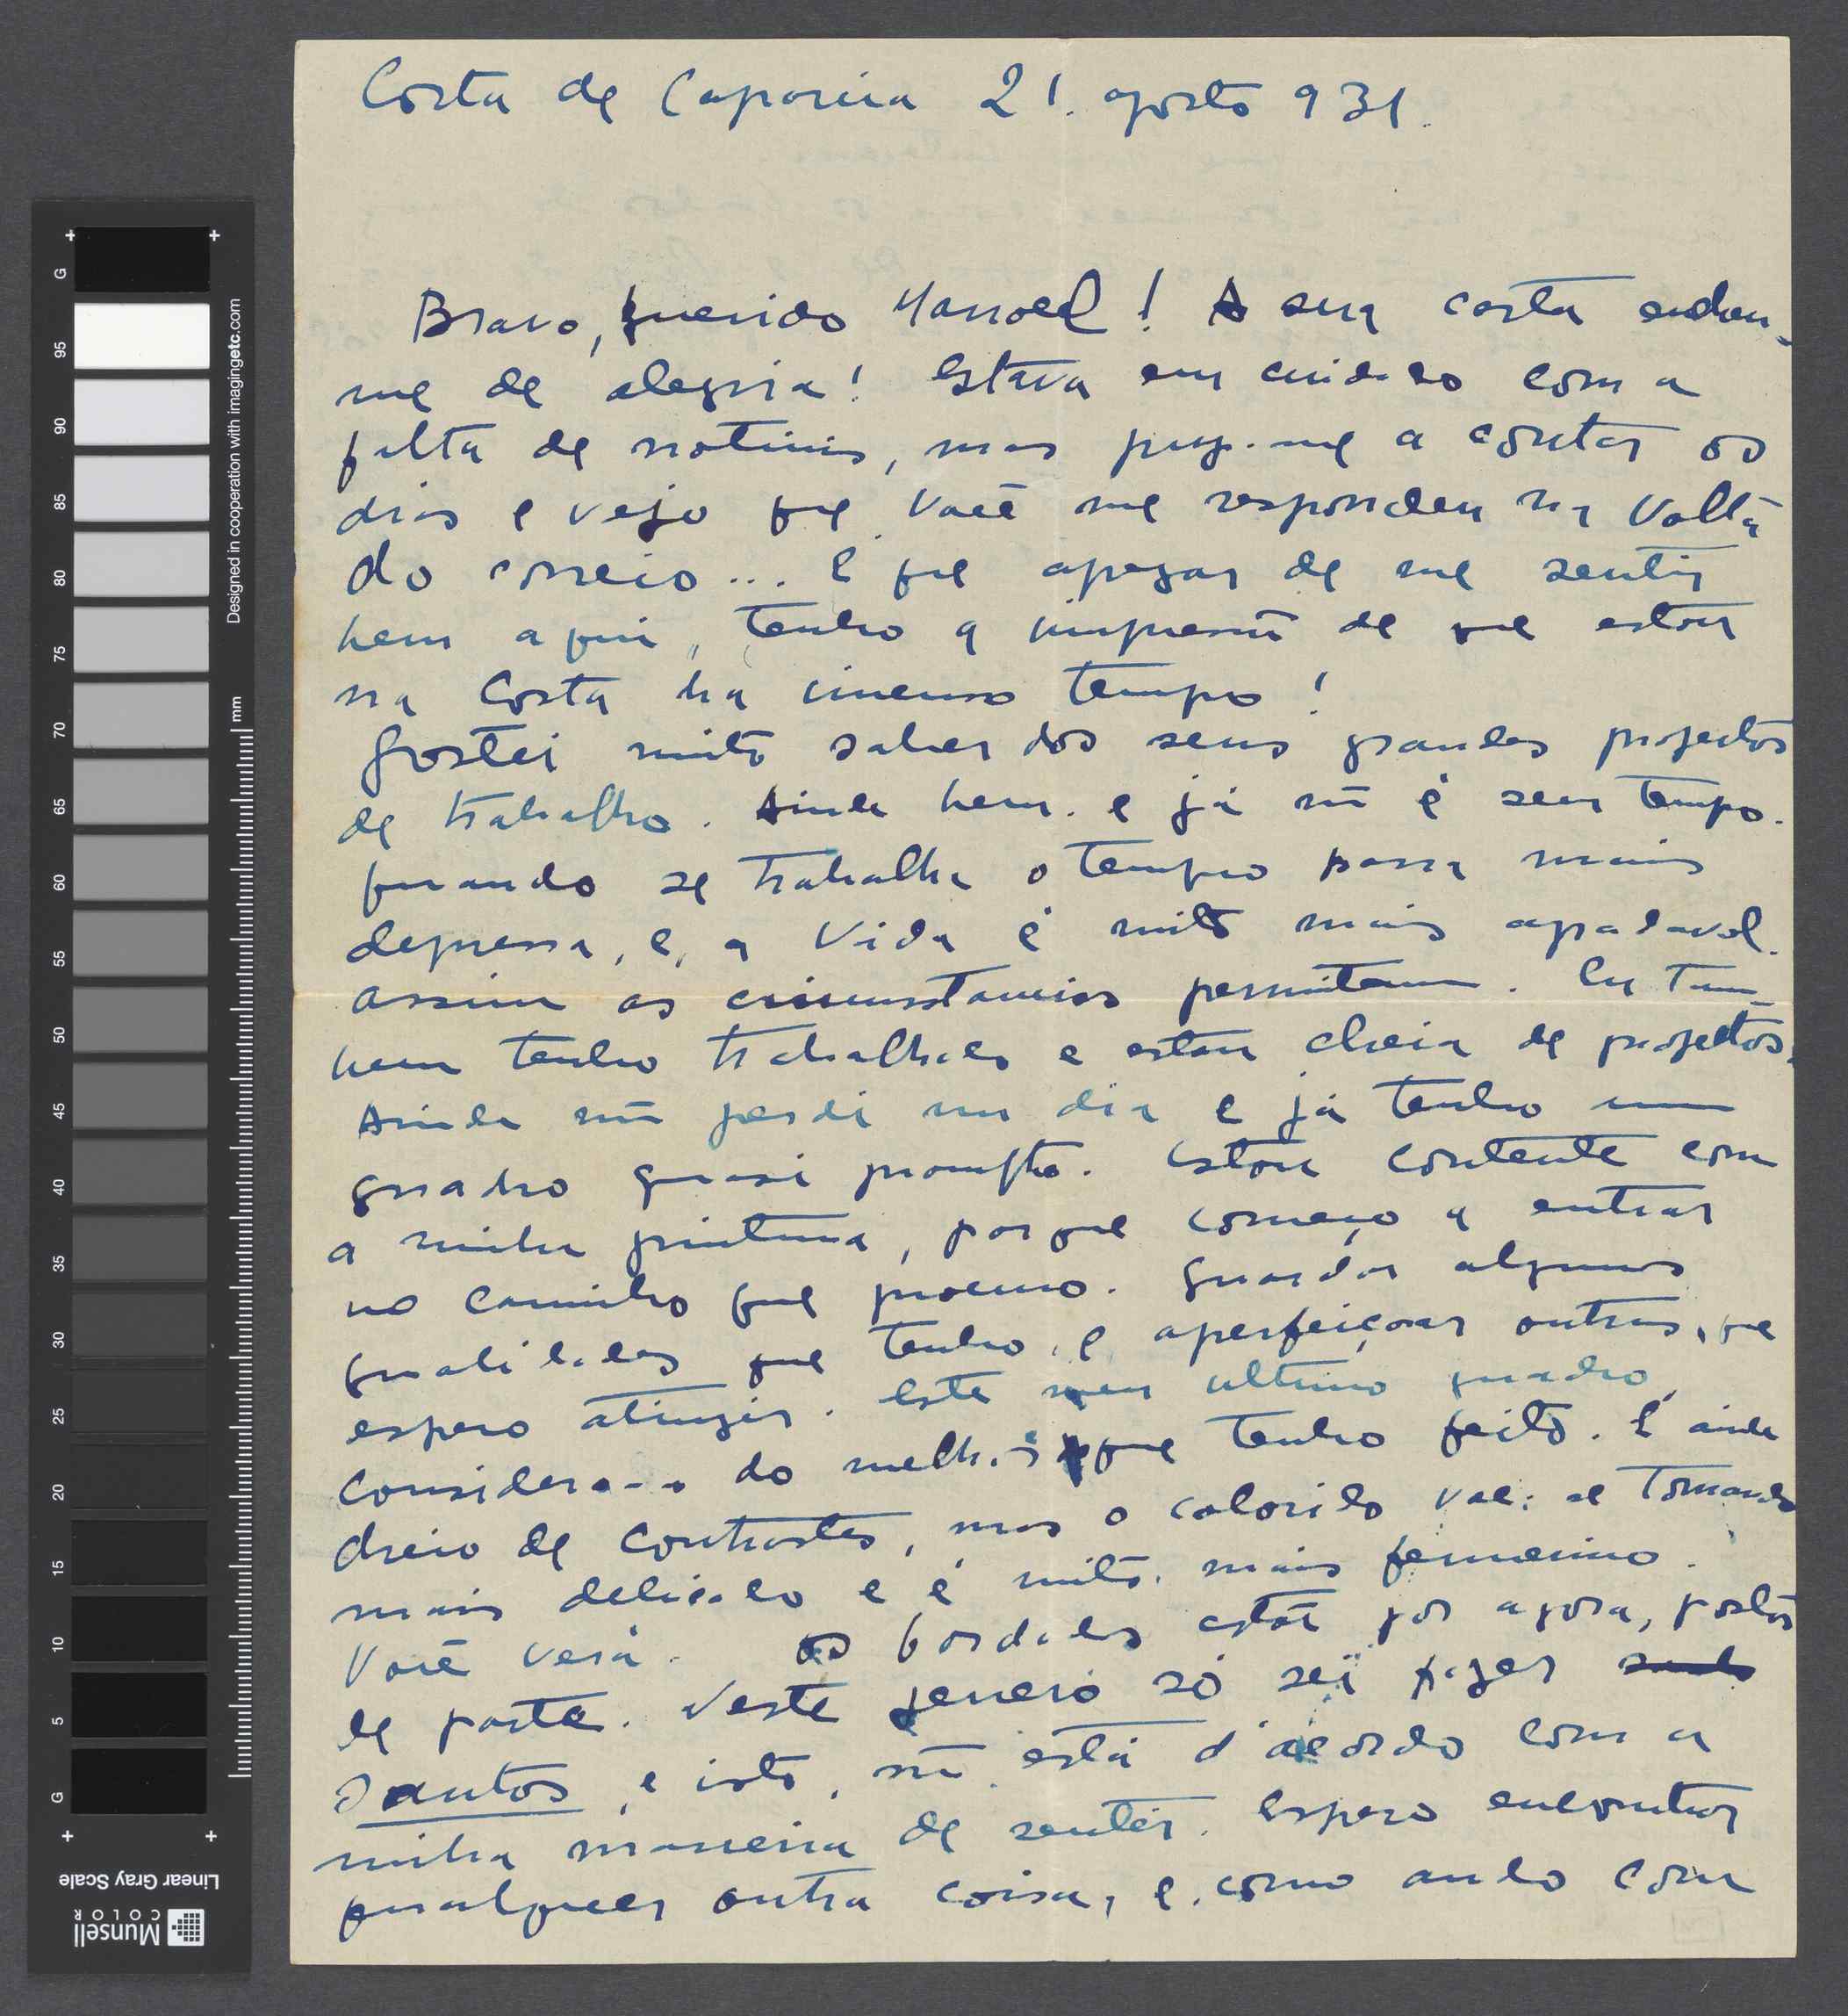 Costa de Caparica 21. agosto 931.
Bravo, querido Manoel! A sua carta encheu-
me de alegria! Estava em cuidado com a
falta de noticias, mas puz-me a contar os
dias e vejo que você me respondeu na volta
do correio... E que apezar de me sentir
bem aqui, tenho a impressão de que estou
na Costa ha imenso tempo!
Gostei muito saber dos seus grandes projectos
de trabalho. Ainda bem. e já não é sem tempo.
quando se trabalha o tempo passa mais
depressa, e, a vida é muito mais agradavel.
assim as circunstancias permitam. Eu tam-
bem tenho trabalhado e estou cheia de projectos.
Ainda não perdi um dia e já tenho um
quadro quasi prompto. Estou contente com
a minha pintura, porque começo a entrar
no caminho que procuro. Guardar algumas
qualidades que tenho, e aperfeiçoar outras, que
espero atingir. Este meu ultimo quadro,
considero-o do melhor que tenho feito. É ainda
cheio de contrastes, mas o colorido vai-se tornando
mais delicado e é muito mais femenino.
Você verá. Os bordados estão por agora, postos
de parte. Neste genero só sei fazer
Santos, e isto, não está d'acordo com a
minha maneira de sentir. Espero encontrar
qualquer outra coisa, e, como ando com
G
95
90
85
80
75
70
65
60
55
50
45
40
35
30
25
20
15
10
5
G
mm
Designed in cooperation with imagingetc.com
Linear Gray Scale
Munsell
COLOR